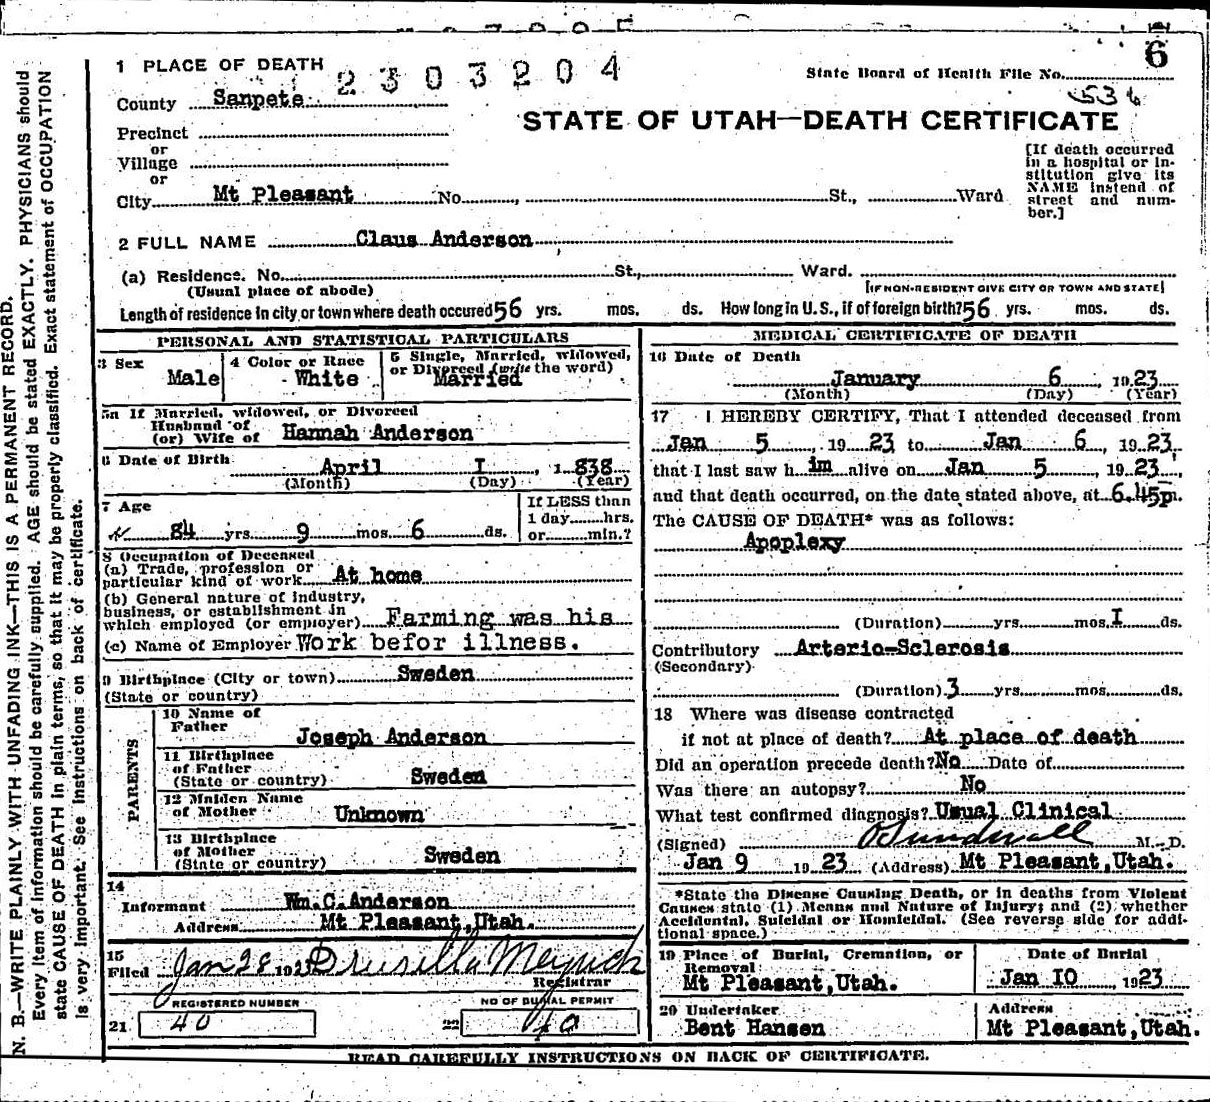 6
1 PLACE OF DEATH 2303204 State Board of Health File No.
536
County Sanpete
STATE OF UTAH—DEATH CERTIFICATE
Precinct
or
Village
or
City Mt Pleasant No. , St., Ward
[If death occurred
in a hospital or in-
stitution give its
NAME instead of
street and num-
ber.]
2 FULL NAME Claus Anderson
(a) Residence. No. St., Ward.
(Usual place of abode) [IF NON-RESIDENT GIVE CITY OR TOWN AND STATE]
Length of residence in city or town where death occured 56 yrs. mos. ds. How long in U.S., if of foreign birth? 56 yrs. mos. ds.
PERSONAL AND STATISTICAL PARTICULARS
3 Sex Male
4 Color or Race White
5 Single, Married, widowed,
or Divorced (write the word)
Married
5a If Married, widowed, or Divorced
Husband of
(or) Wife of Hannah Anderson
6 Date of Birth April I , 1 838
(Month) (Day) (Year)
7 Age
84 yrs. 9 mos. 6 ds.
If LESS than
1 day hrs.
or min.?
8 Occupation of Deceased
(a) Trade, profession or
particular kind of work At home
(b) General nature of industry,
business, or establishment in
which employed (or employer) Farming was his
(c) Name of Employer Work befor illness.
9 Birthplace (City or town) Sweden
(State or country)
PARENTS
10 Name of
Father Joseph Anderson
11 Birthplace
of Father
(State or country) Sweden
12 Maiden Name
of Mother Unknown
13 Birthplace
of Mother
(State or country) Sweden
14
Informant Wm.C.Anderson
Address Mt Pleasant,Utah.
15
Filed Jan 28 192 Drusilla
Registrar
REGISTERED NUMBER
21 40
NO OF BURIAL PERMIT
22
MEDICAL CERTIFICATE OF DEATH
16 Date of Death
January 6 , 19 23
(Month) (Day) (Year)
17 I HEREBY CERTIFY, That I attended deceased from
Jan 5 , 19 23 to Jan 6 , 19 23,
that I last saw h im alive on Jan 5 , 19 23,
and that death occurred, on the date stated above, at 6.45p m.
The CAUSE OF DEATH* was as follows:
Apoplexy
(Duration) yrs. mos. I ds.
Contributory Arterio-Sclerosis
(Secondary)
(Duration) 3 yrs. mos. ds.
18 Where was disease contracted
if not at place of death? At place of death
Did an operation precede death? No Date of
Was there an autopsy? No
What test confirmed diagnosis? Usual Clinical
(Signed) Sundwall M. D.
Jan 9 19 23 (Address) Mt Pleasant,Utah.
*State the Disease Causing Death, or in deaths from Violent
Causes state (1) Means and Nature of Injury; and (2) whether
Accidental, Suicidal or Homicidal. (See reverse side for addi-
tional space.)
19 Place of Burial, Cremation, or
Removal
Mt Pleasant,Utah.
Date of Burial
Jan IO , 19 23
20 Undertaker
Bent Hansen
Address
Mt Pleasant,Utah.
READ CAREFULLY INSTRUCTIONS ON BACK OF CERTIFICATE.
N. B.—WRITE PLAINLY WITH UNFADING INK—THIS IS A PERMANENT RECORD.
Every item of information should be carefully supplied. AGE should be stated EXACTLY. PHYSICIANS should
state CAUSE OF DEATH in plain terms, so that it may be properly classified. Exact statement of OCCUPATION
is very important. See instructions on back of certificate.